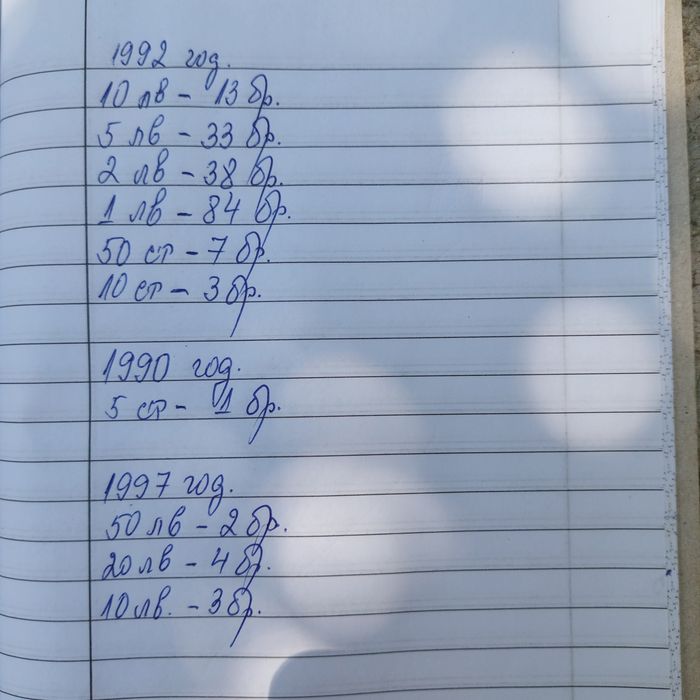 1992 год.
10 лв - 13 бр.
5 лв - 33 бр.
2 лв - 38 бр.
1 лв - 84 бр.
50 ст - 7 бр.
10 ст - 3 бр.
1990 год.
5 ст - 1 бр.
1997 год.
50 лв - 2 бр.
20 лв - 4 бр.
10 лв. - 3 бр.